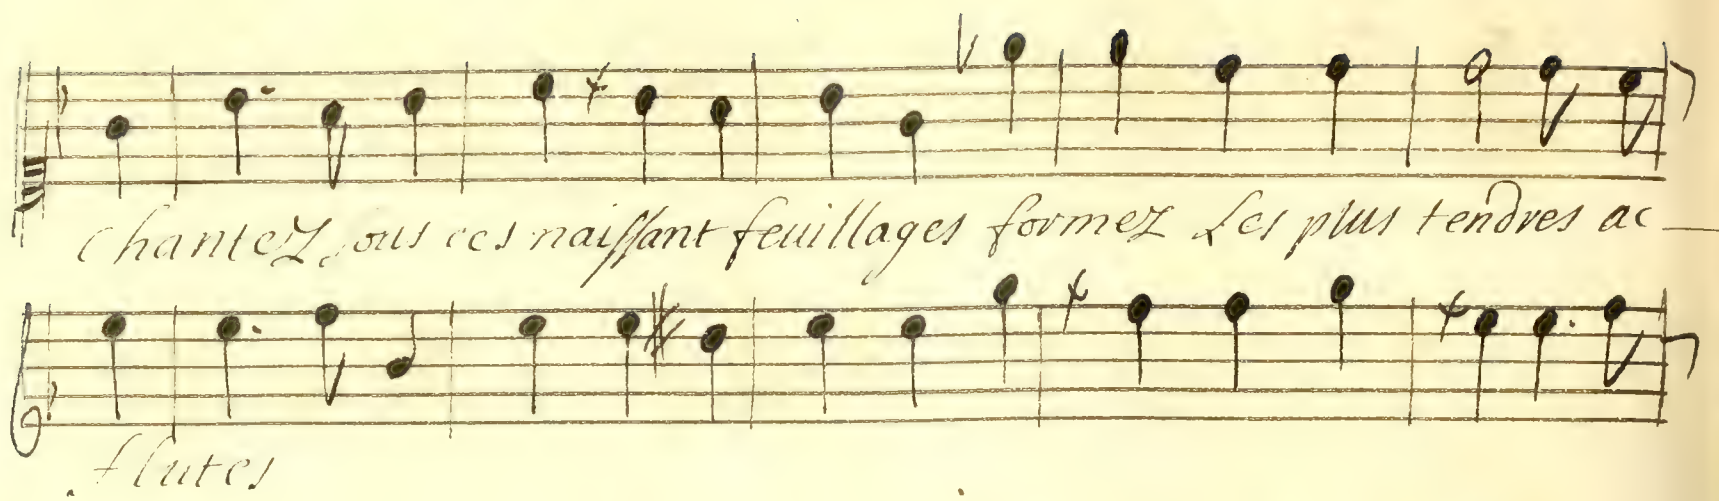 chantez sous ces naissant feuillages formez Les plus tendres ac
flutes